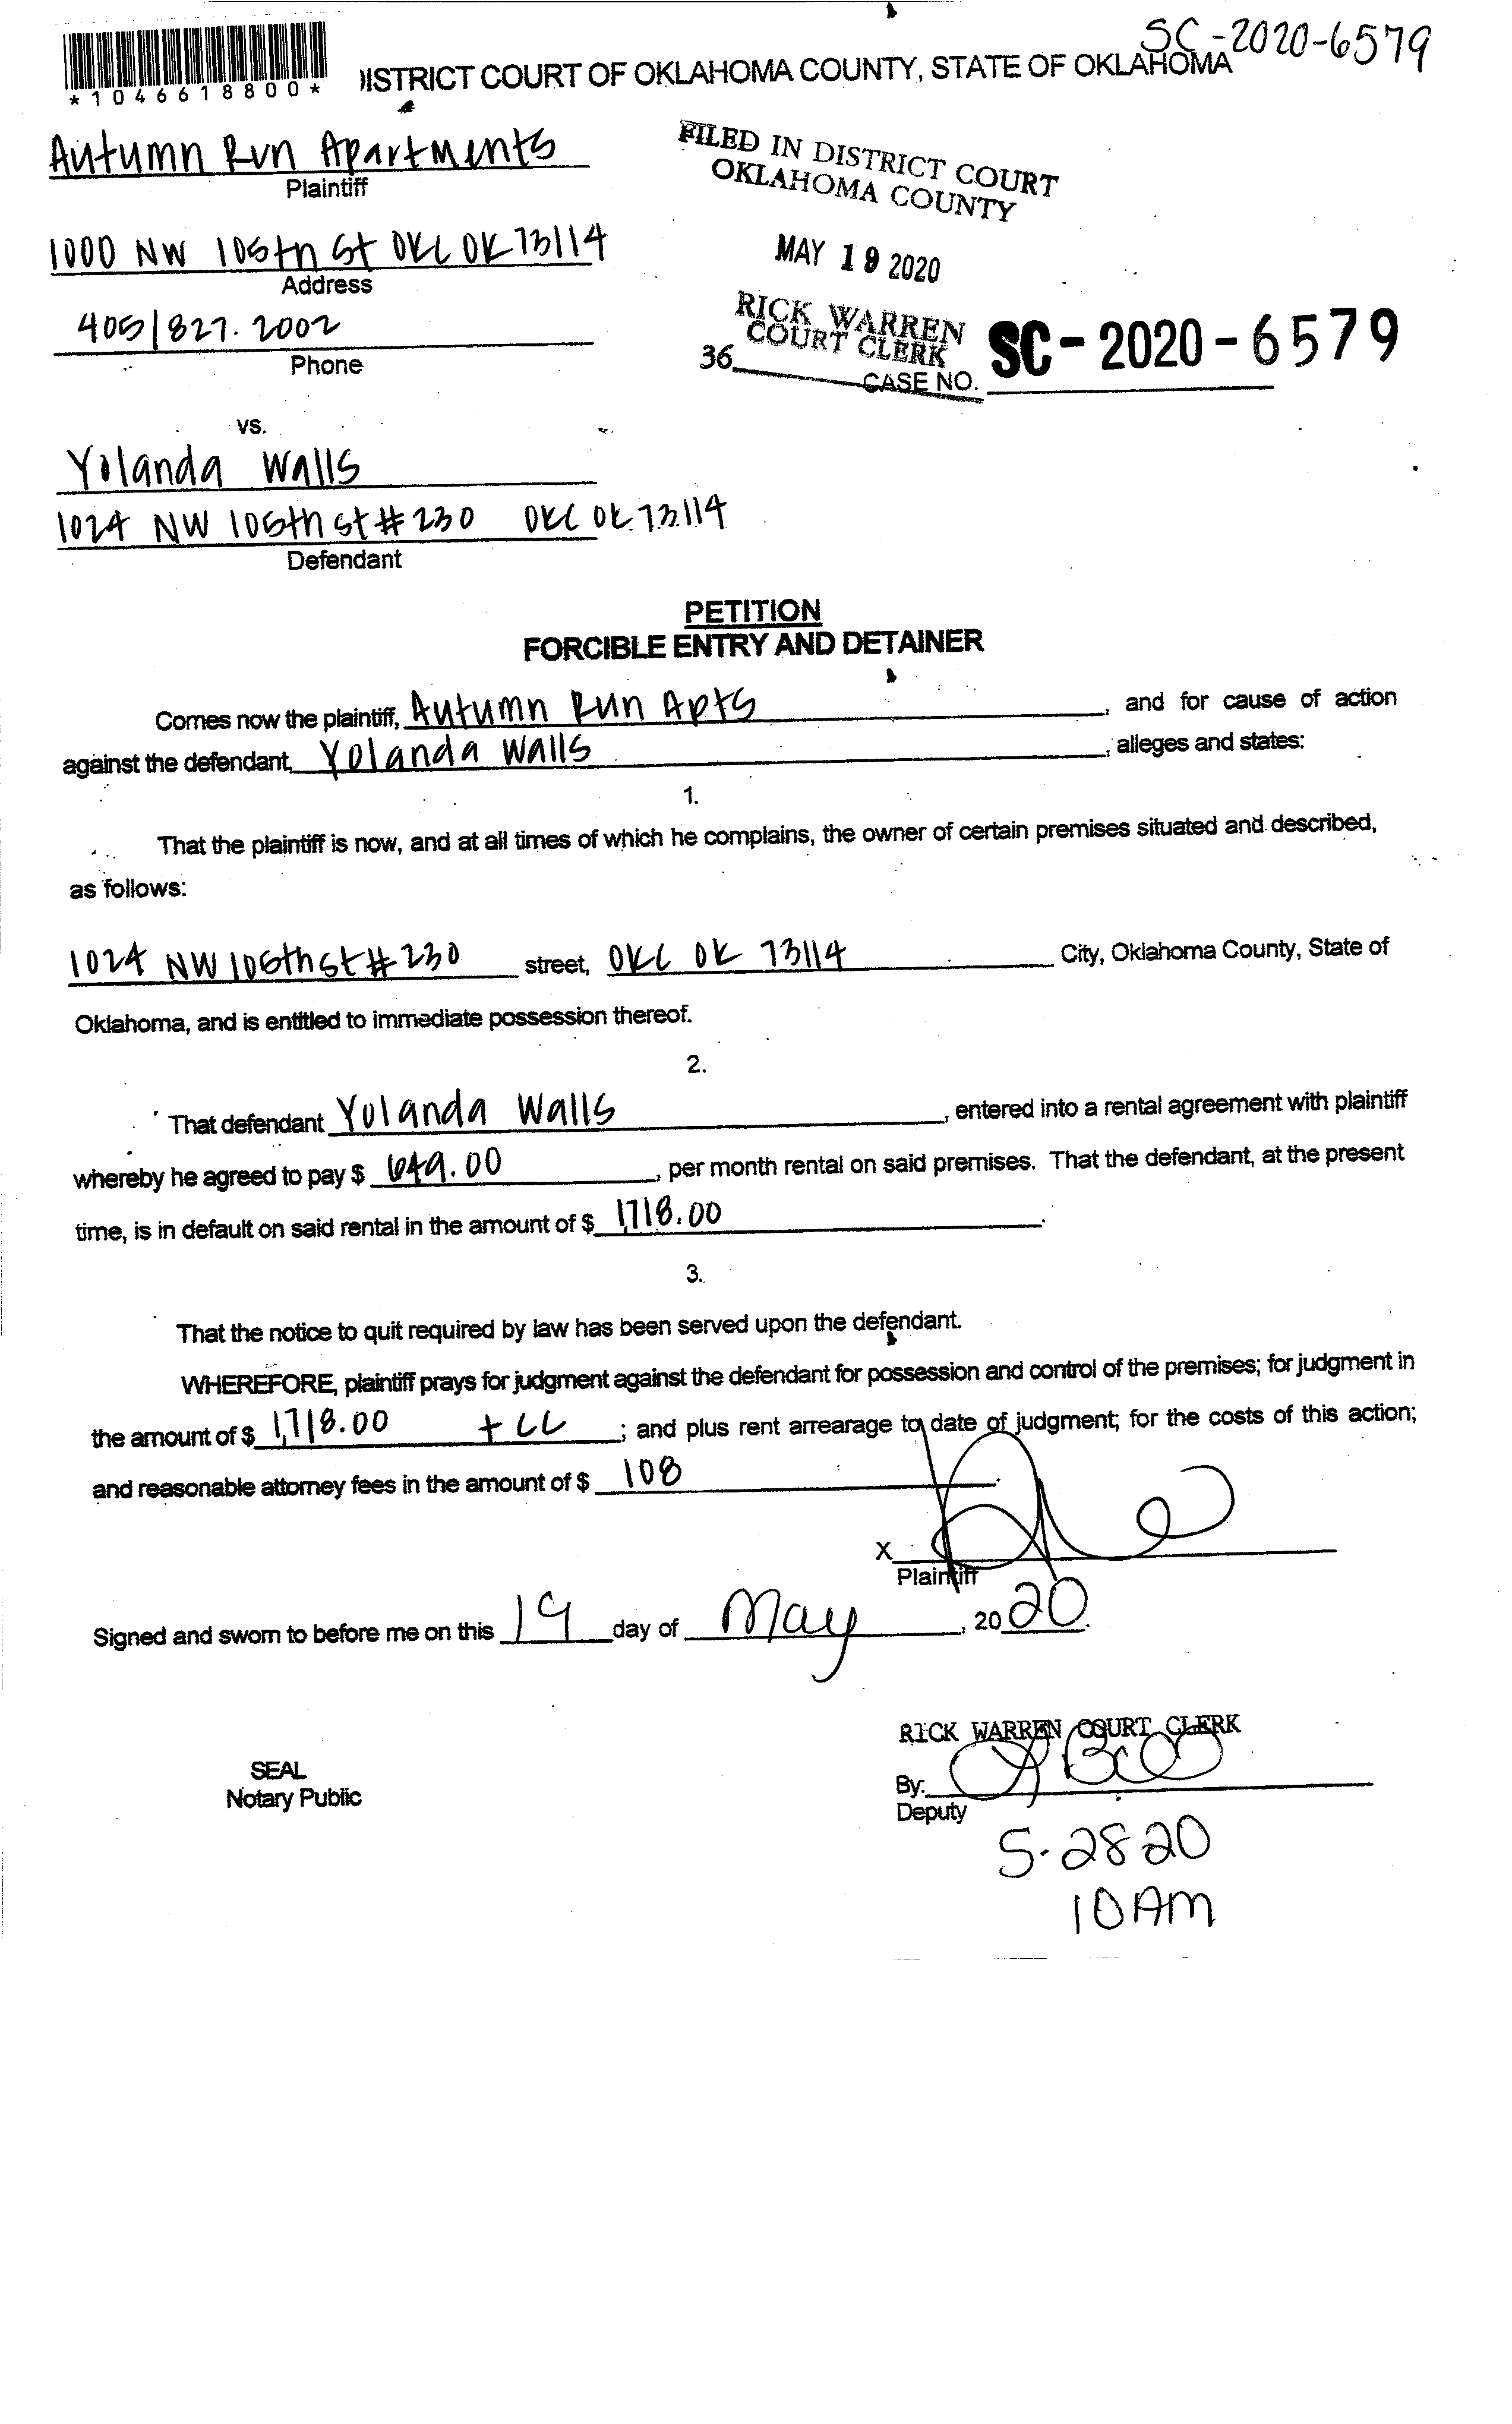 SC-2020-6579
*1046618800*
DISTRICT COURT OF OKLAHOMA COUNTY, STATE OF OKLAHOMA
Autumn Run Apartments
Plaintiff
FILED IN DISTRICT COURT
OKLAHOMA COUNTY
1000 NW 105th St OKC OK 73114
Address
MAY 19 2020
405/827.2002
Phone
RICK WARREN
COURT CLERK
36 CASE NO. SC-2020-6579
vs.
Yolanda Walls
1024 NW 105th st #230 OKC OK 73114
Defendant
PETITION
FORCIBLE ENTRY AND DETAINER
Comes now the plaintiff, Autumn Run Apts, and for cause of action
against the defendant, Yolanda Walls, alleges and states:
1.
That the plaintiff is now, and at all times of which he complains, the owner of certain premises situated and described,
as follows:
1024 NW 105th st #230 street, OKC OK 73114 City, Oklahoma County, State of
Oklahoma, and is entitled to immediate possession thereof.
2.
That defendant Yolanda Walls, entered into a rental agreement with plaintiff
whereby he agreed to pay $ 649.00, per month rental on said premises. That the defendant, at the present
time, is in default on said rental in the amount of $ 1,718.00.
3.
That the notice to quit required by law has been served upon the defendant.
WHEREFORE, plaintiff prays for judgment against the defendant for possession and control of the premises; for judgment in
the amount of $ 1,718.00 + CC; and plus rent arrearage to date of judgment; for the costs of this action;
and reasonable attorney fees in the amount of $ 108.
X
Plaintiff
Signed and sworn to before me on this 19 day of May, 2020.
RICK WARREN COURT CLERK
SEAL
Notary Public
By:
Deputy
5-28 20
10 AM